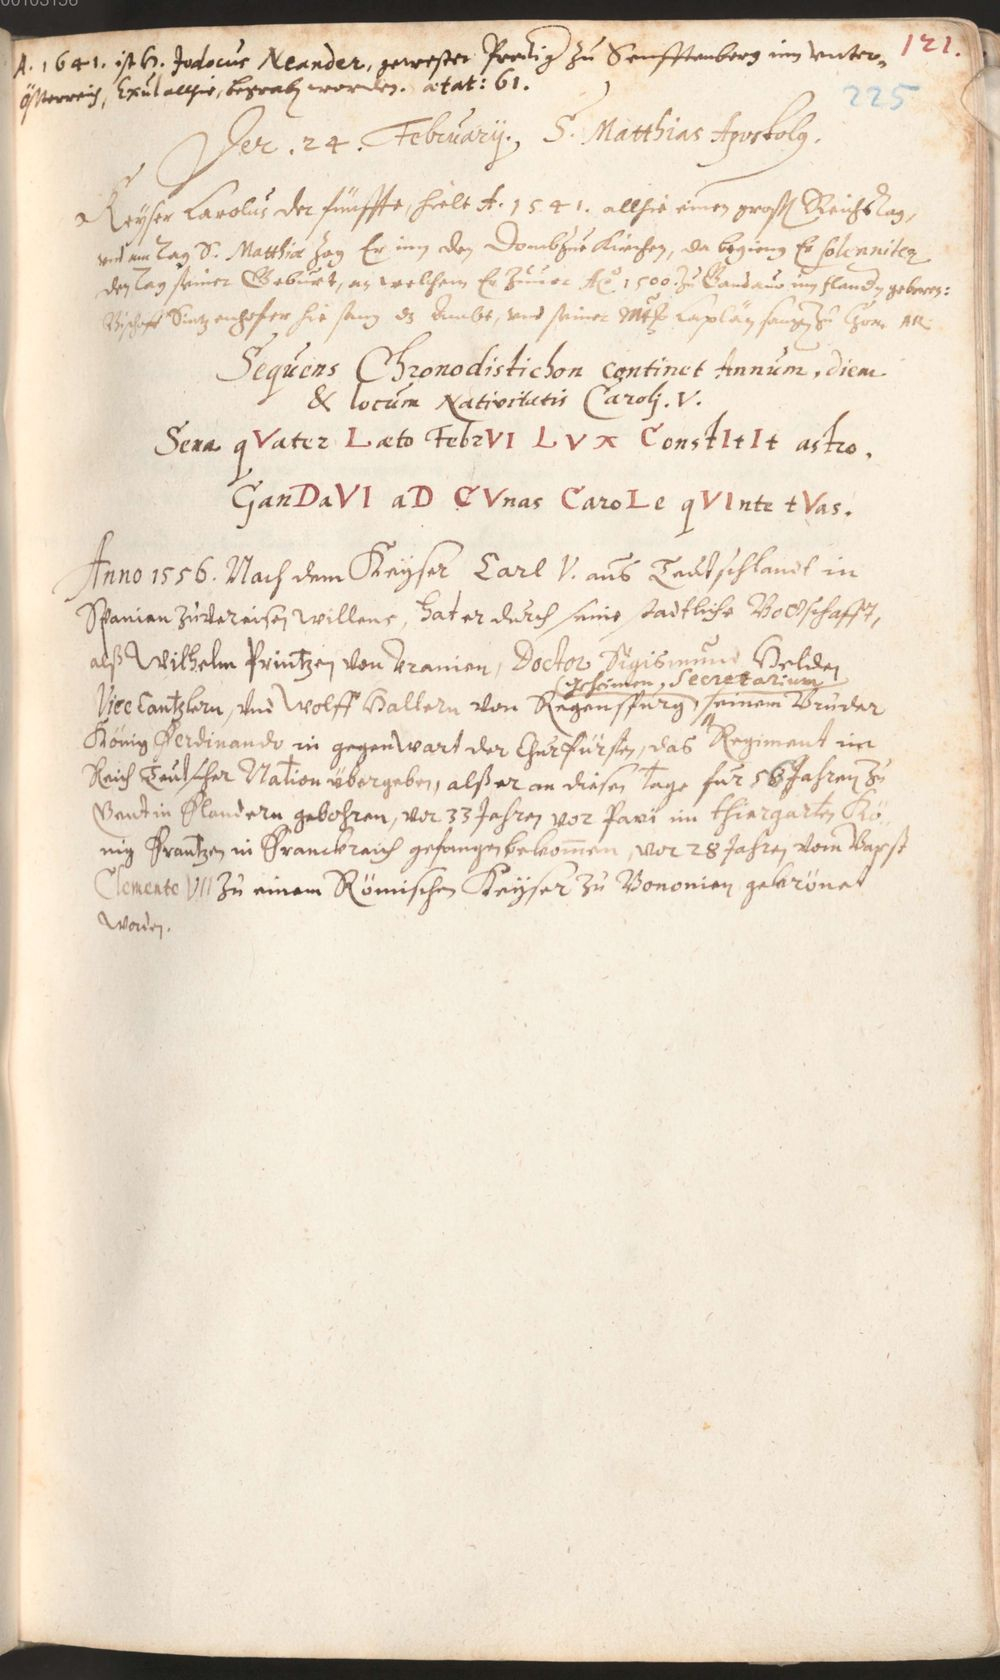 00103156
121.
225
A. 1641. ist H. Jodocus Neander, gewester Predig zu Senfftenberg im Unter-
Österreich, Exul allhie, begrab worden. ætat: 61.
Der . 24 . February., S. Matthias Apostolg.
Keyser Carolus der fünffte, hielt A. 1541. allhie einen groß Reichstag,
und am Tag S. Matthiæ zog Er inn den Domb zur Kirchen, da begieng Er solenniter
den Tag seiner Geburt, an welchem Er zuvor Aō 1500. zu Gandavo inn Flandn geboren:
Bischoff Sintzenhofer hie sang dz Ambt, und seiner Mtt Caplän sangen zu Chor.
Sequens Chronodistichon continet Annum, diem
& locum Nativitatis Carolj. V.
Sena qVater Læto FebrVI LVX ConstItIt astro.
GanDaVI aD CVnas CaroLe qVInte tVas.
Anno 1556. Nach dem Keyser Carl V. auß Teutschlandt in
Spanien zuverreisen willens, hat er durch seine stadtliche Bottschafft,
alß Wilhelm Printzen von Vranien, Doctor Sigismund Helden
geheimen, Secretarium
Vice Cantzlern, und Wolff Hallern von Regenspurg, seinem Bruder
König Ferdinando in gegenwart der Churfürsten, das Regiment im
Reich Teutscher Nation übergeben, alß er an diesen tage für 56 Jahren zu
Gent in Flandern gebohren, vor 33 Jahren vor Pavi im thiergarten Kö-
nig Frantzen in Franckreich gefangen bekom̄en, vor 28 Jahren vom Bapst
Clemente VII zu einem Römischen Keyser zu Bononien gekrönet
worden.